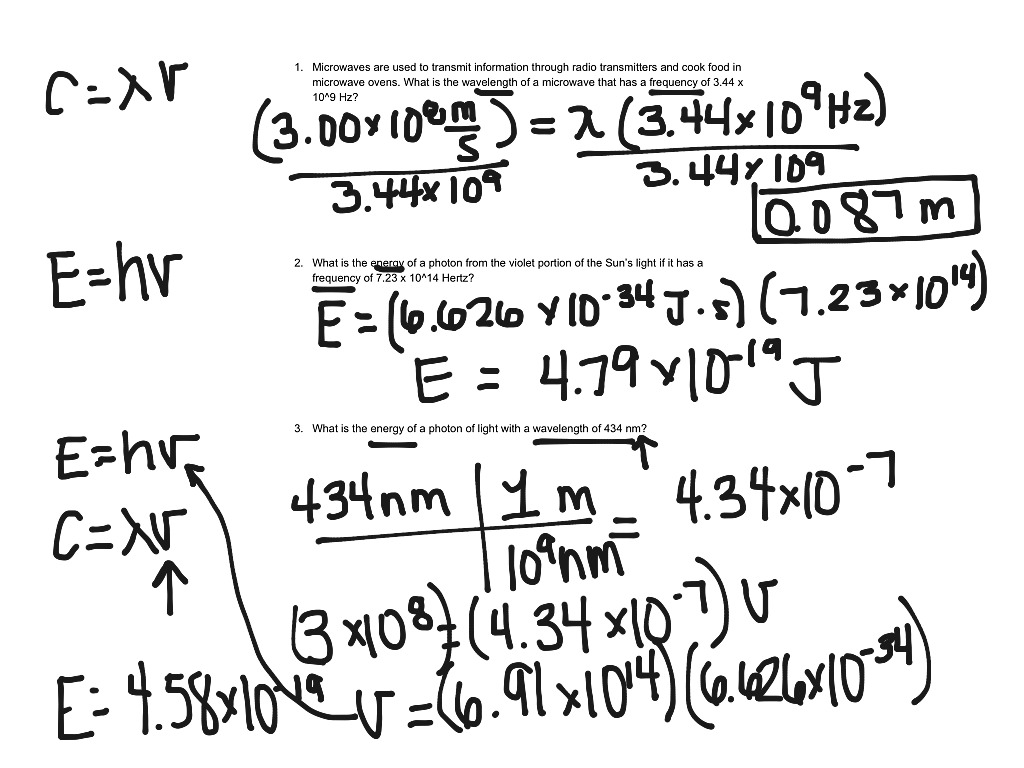 C = λν
1. Microwaves are used to transmit information through radio transmitters and cook food in
microwave ovens. What is the wavelength of a microwave that has a frequency of 3.44 x
10^9 Hz?
(3.00 x 10⁸ m/s) = λ (3.44 x 10⁹ Hz)
3.44 x 10⁹ 3.44 x 10⁹
0.087 m
E = hν
2. What is the energy of a photon from the violet portion of the Sun's light if it has a
frequency of 7.23 x 10^14 Hertz?
E = (6.626 x 10⁻³⁴ J·s) (7.23 x 10¹⁴)
E = 4.79 x 10⁻¹⁹ J
3. What is the energy of a photon of light with a wavelength of 434 nm?
E = hν
434 nm | 1 m = 4.34 x 10⁻⁷
10⁹ nm
C = λν
(3 x 10⁸) = (4.34 x 10⁻⁷) ν
E = 4.58 x 10⁻¹⁹ ν = (6.91 x 10¹⁴) (6.626 x 10⁻³⁴)